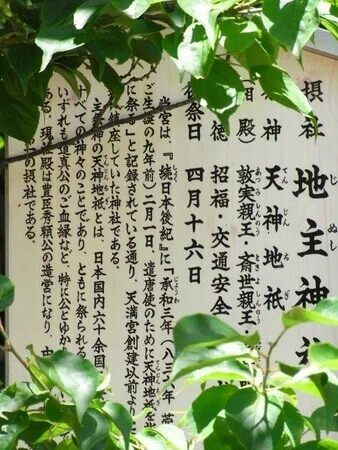 摂社 地主神社
神 天神地祇
殿) 敦実親王・斎世親王・
徳 招福・交通安全
祭日 四月十六日
当宮は、『続日本後紀』に「承和三年(八三六年、菅
ご生誕の九年前)二月一日、遣唐使のために天神地祇を
に祭る」と記録されている通り、天満宮創建以前より
鎮座していた神社である。
主祭神の天神地祇とは、日本国内六十余国
すべての神々のことであり、ともに祭られる
いずれも道真公のご血縁など、特に公とゆか
ある。現社殿は豊臣秀頼公の造営になり、
の摂社である。